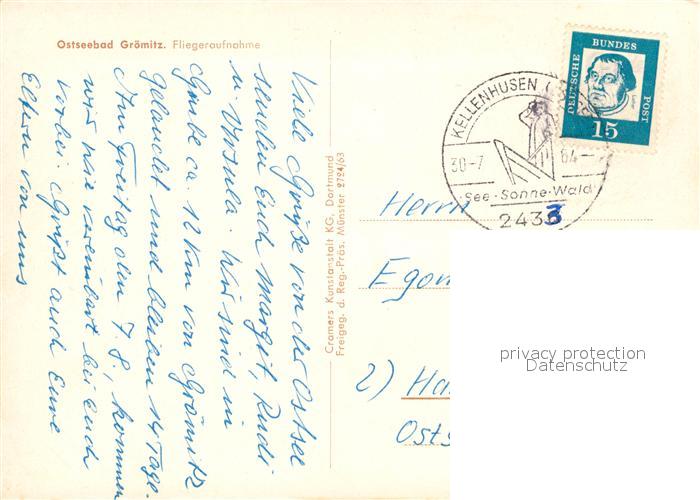 Ostseebad Grömitz. Fliegeraufnahme
Viele Grüße von der Ostsee
senden Euch Margit, Rudi
u Ursula. Wir sind in
Grube ca. 12 km von Grömitz
gelandet und bleiben 14 Tage.
Am Freitag den 7.8. kommen
wir wie vereinbart bei Euch
vorbei. Grüßt auch Eure
Eltern von uns
Cramers Kunstanstalt KG. Dortmund
Freigeg. d. Reg.-Präs. Münster 2724/63
KELLENHUSEN (
30-7
64-
See-Sonne-Wald
2433
DEUTSCHE
BUNDES
POST
15
Herrn
Egon
2) Ha
Osts
privacy protection
Datenschutz